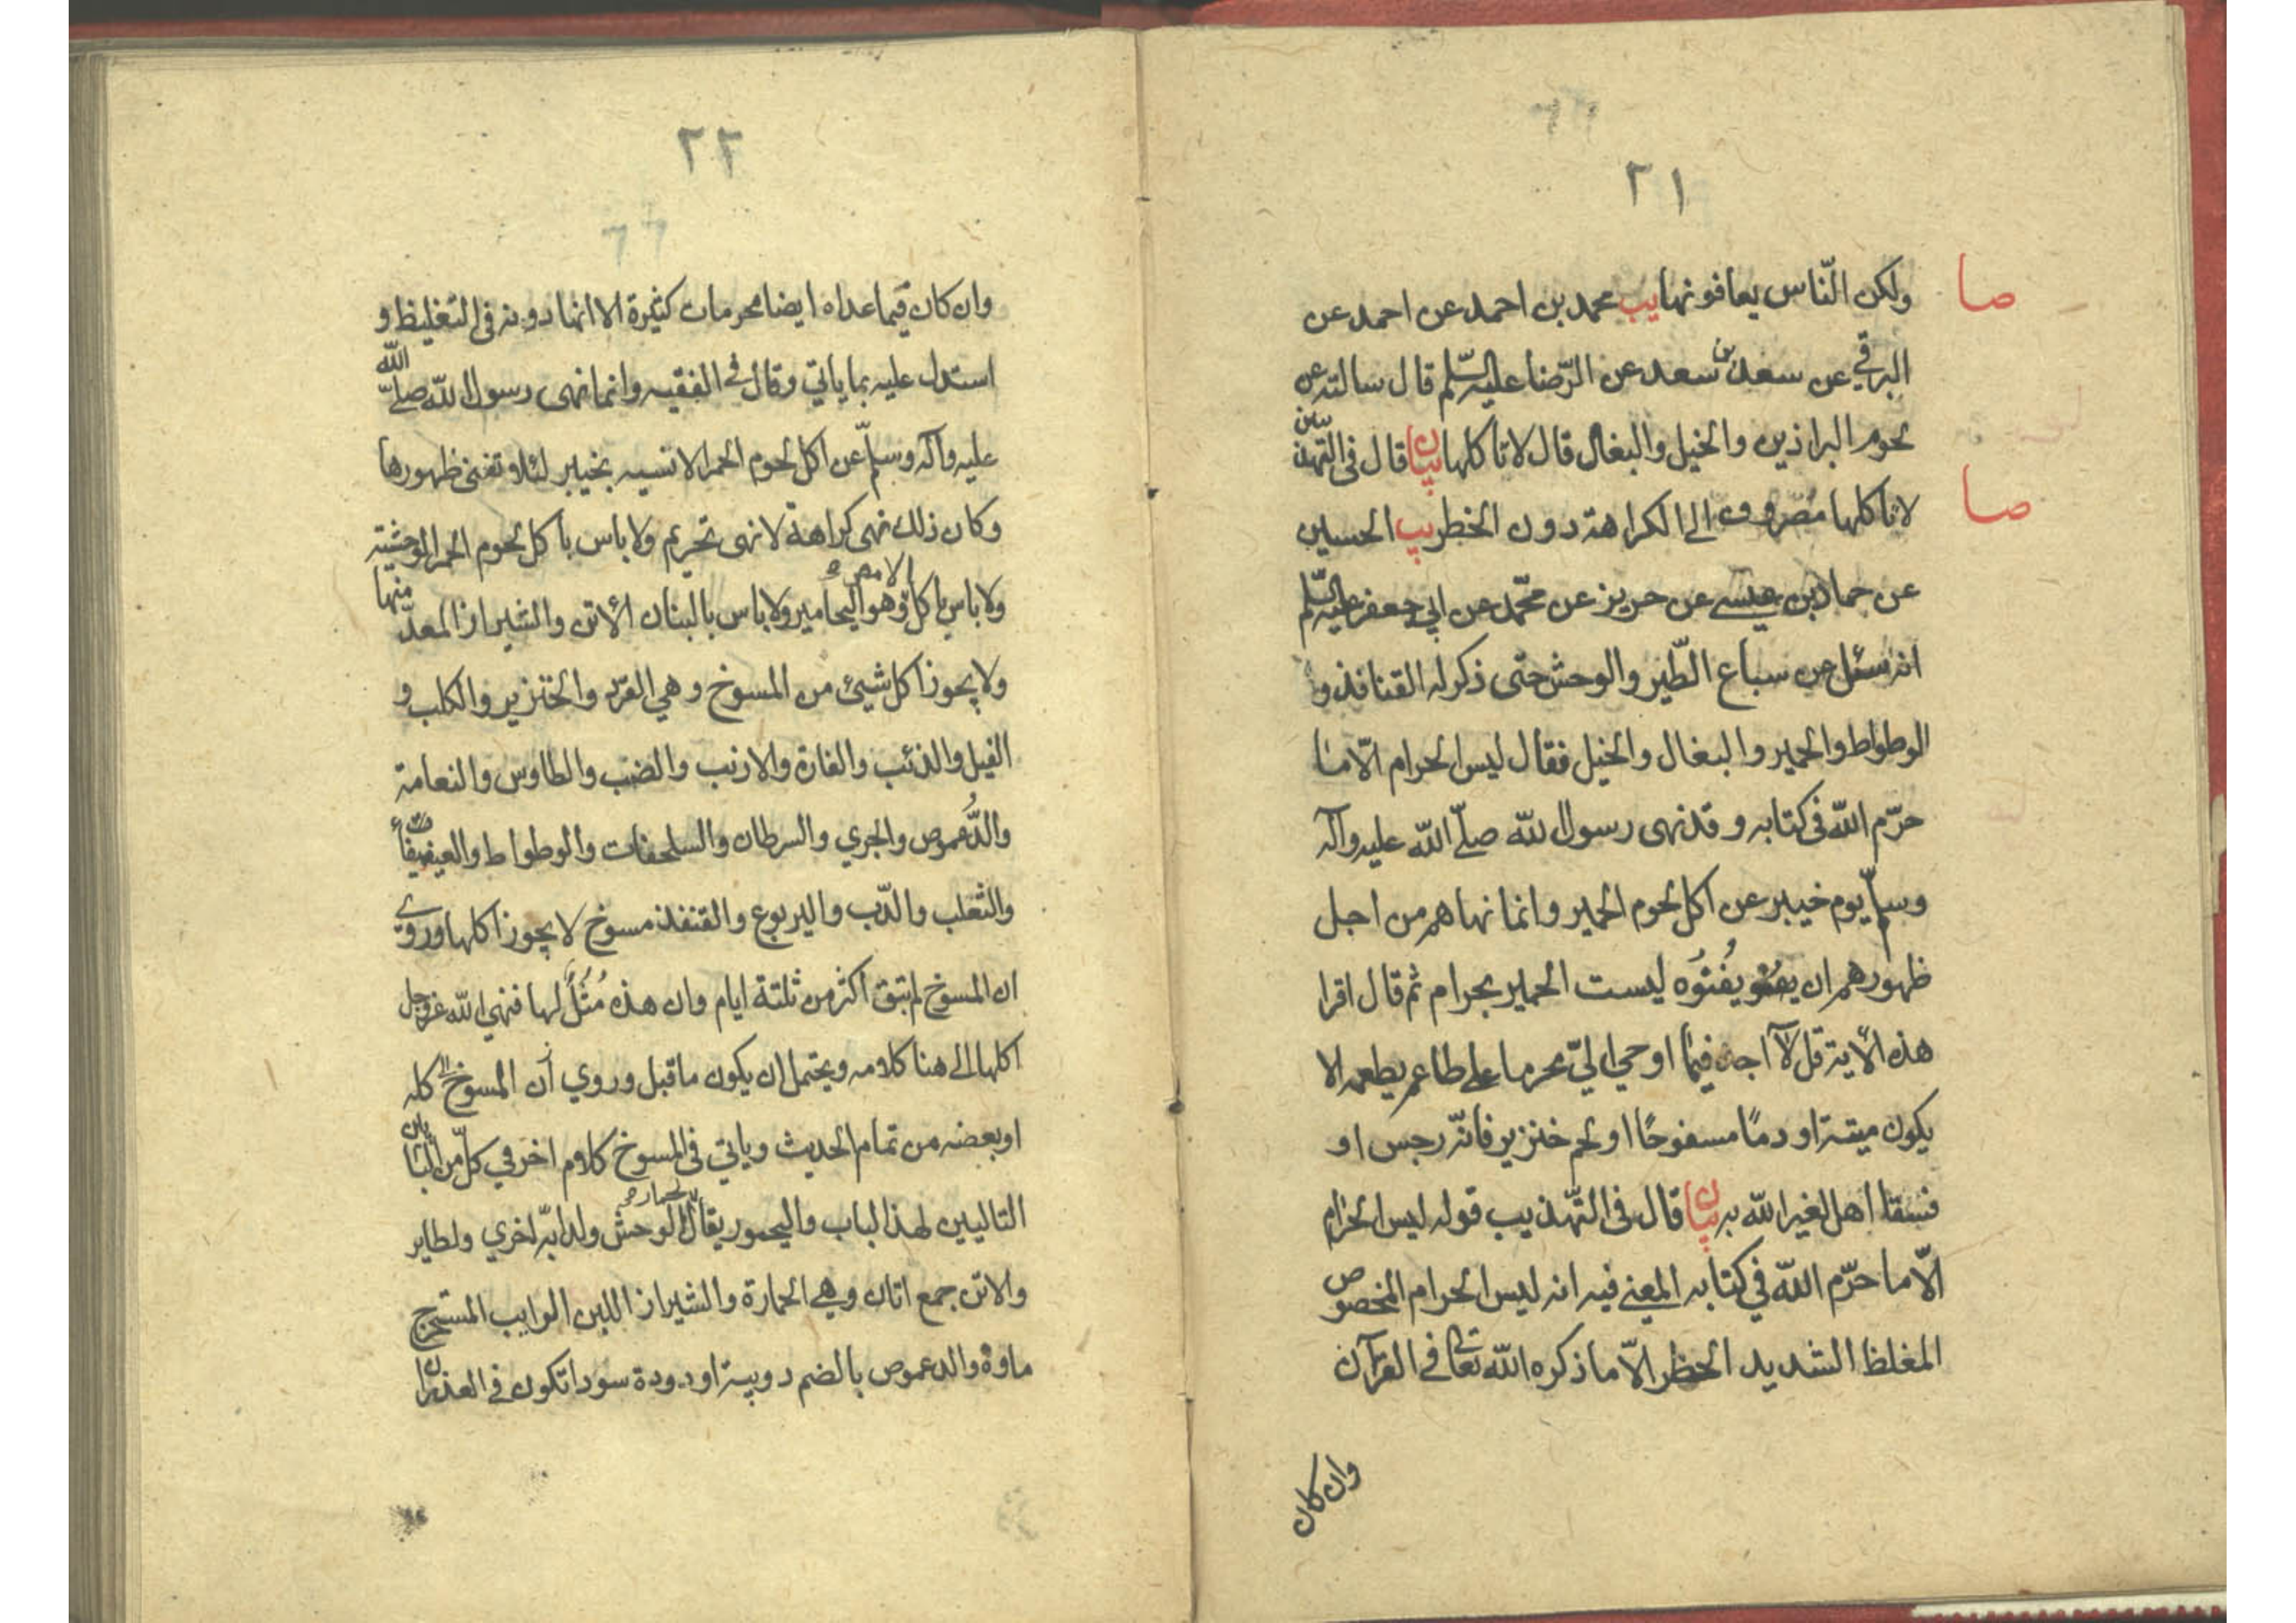 ٢١
صا
ولكن النّاس يعافونها يب محمد بن احمد عن احمد عن
البرقي عن سعد بن سعد عن الرّضا عليه السّلم قال سالته عن
لحوم البراذين والخيل والبغال قال لا تاكلها بيان قال في التهذيب
صا
لا تاكلها مصروف الى الكراهة دون الخطر يب الحسين
عن حماد بن عيسى عن حريز عن محمّد عن ابي جعفر عليه السّلم
انه سئل عن سباع الطّير والوحش حتى ذكر له القنافذ و
الوطواط والحمير والبغال والخيل فقال ليس الحرام الّا ما
حرّم الله في كتابه وقد نهى رسول الله صلّى الله عليه وآله
وسلّم يوم خيبر عن اكل لحوم الحمير وانما نهاهم من اجل
ظهورهم ان يفنوه ليست الحمير بحرام ثم قال اقرا
هذه الآية قل لا اجد فيما اوحي اليّ محرما على طاعم يطعمه الا
يكون ميتة او دمًا مسفوحًا او لحم خنزير فانّه رجس او
فسقا اهل لغير الله به بيان قال في التّهذيب قوله ليس الحرام
الّا ما حرّم الله في كتابه المعنى فيه انه ليس الحرام المخصوص
المغلظ الشديد الحظر الّا ما ذكره الله تعالى في القرآن
وان كان
٢٢
وان كان فيما عداه ايضا محرمات كثيرة الا انها دونه في التغليظ و
استدل عليه بما ياتي وقال في الفقيه وانما نهى رسول الله صلّى الله
عليه وآله وسلّم عن اكل لحوم الحمر الانسيه بخيبر لئلا تفنى ظهورها
وكان ذلك نهى كراهة لا نهى تحريم ولا باس باكل لحوم الحمر الوحشية
ولا باس باكل الامص وهو اليحامير ولا باس بالبنان الأتن والشيراز المعدّ منها
ولا يجوز اكل شيئ من المسوخ وهي القرد والخنزير والكلب و
الفيل والذئب والفارة والارنب والضب والطاوس والنعامة
والدُّعموص والجري والسرطان والسلحفات والوطواط والعيفيفا
والثعلب والدّب واليربوع والقنفذ مسوخ لا يجوز اكلها وروي
ان المسوخ لم تبق اكثر من ثلثة ايام وان هذه مُثُلٌ لها فنهى الله عز وجل
اكلها الى هنا كلامه ويحتمل ان يكون ما قبل وروي أن المسوخ الى كله
او بعضه من تمام الحديث وياتي في المسوخ كلام اخر في كلّ من البابان
التاليين لهذا الباب واليحمور يقال لحمار الوحش ولدابّه اخري ولطاير
والاتن جمع اتان وهي الحمارة والشيراز اللبن الرايب المستخرج
ماوه والدعموص بالضم دويبة او دودة سودا تكون في الغدران